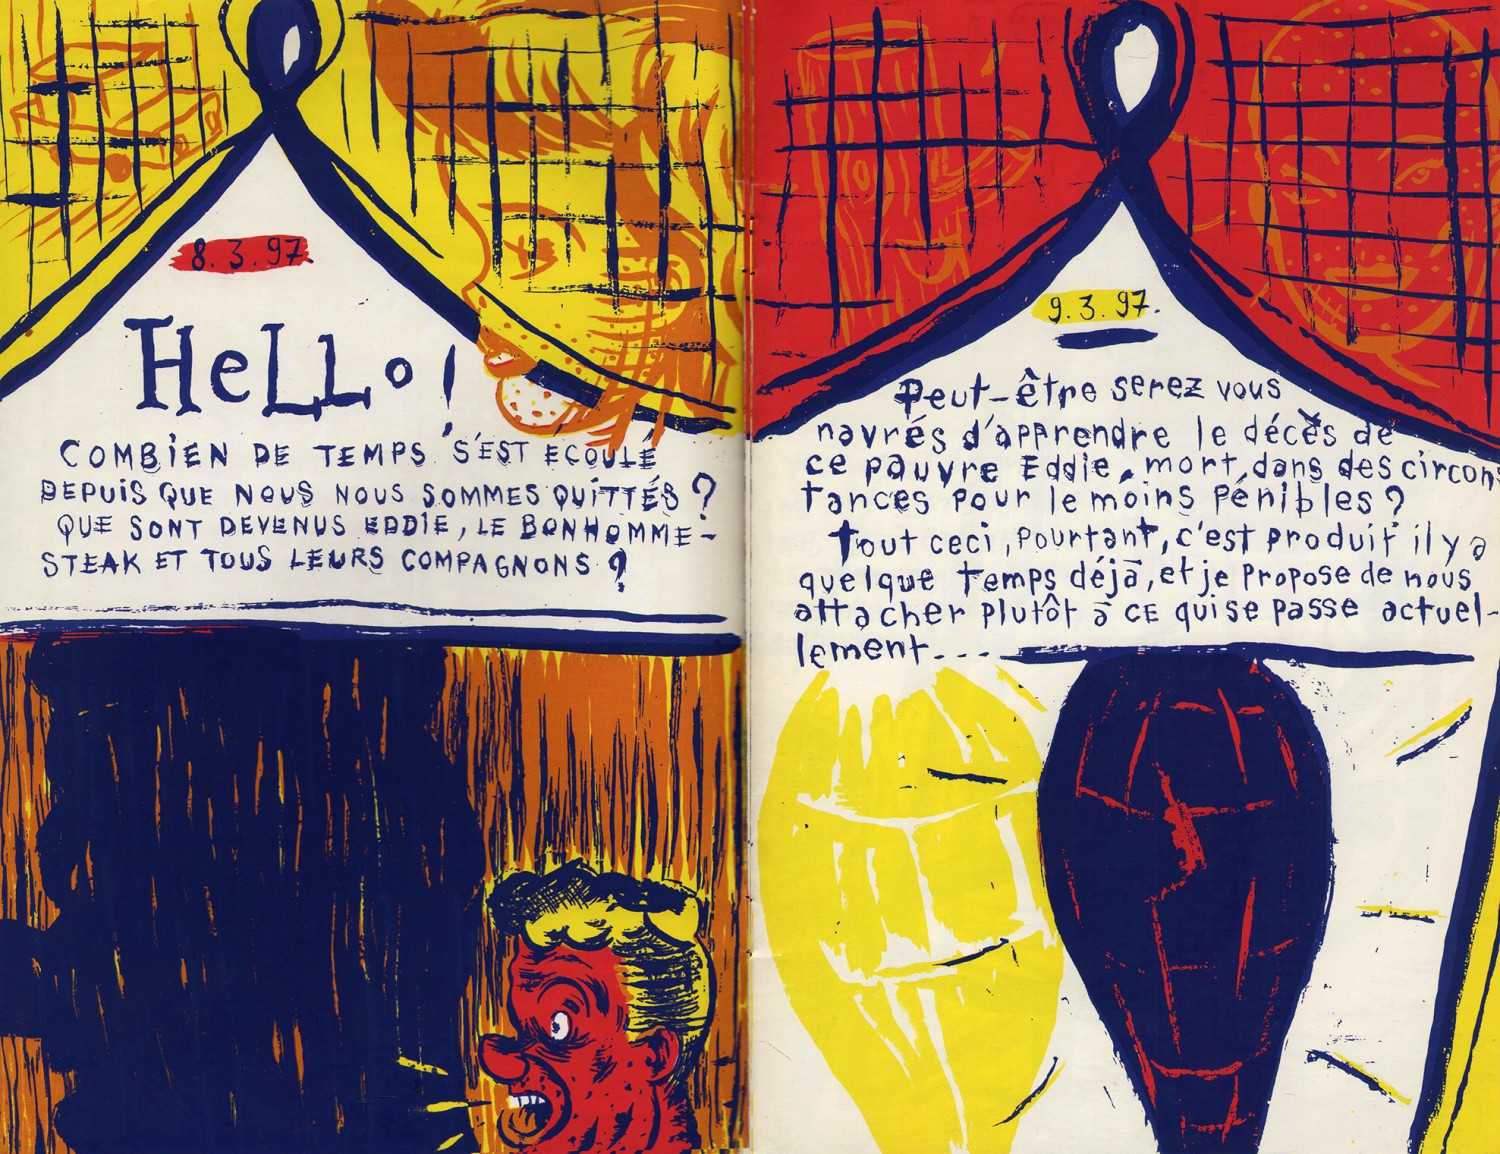 8.3.97.
HeLLo!
COMBiEN DE TEMPS S'EST ECOULÉ
DEPUiS QUE NOUS NOUS SOMMES QUiTTÉS ?
QUE SONT DEVENUS EDDiE, LE BONHOMME-
STEAK ET TOUS LEURS COMPAGNONS ?
9.3.97.
Peut-être serez vous
navrés d'apprendre le décès de
ce pauvre Eddie, mort, dans des circons
tances pour le moins pénibles ?
Tout ceci, pourtant, c'est produit il y a
quelque temps déjà, et je propose de nous
attacher plutôt à CE qui se passe actuel-
lement...